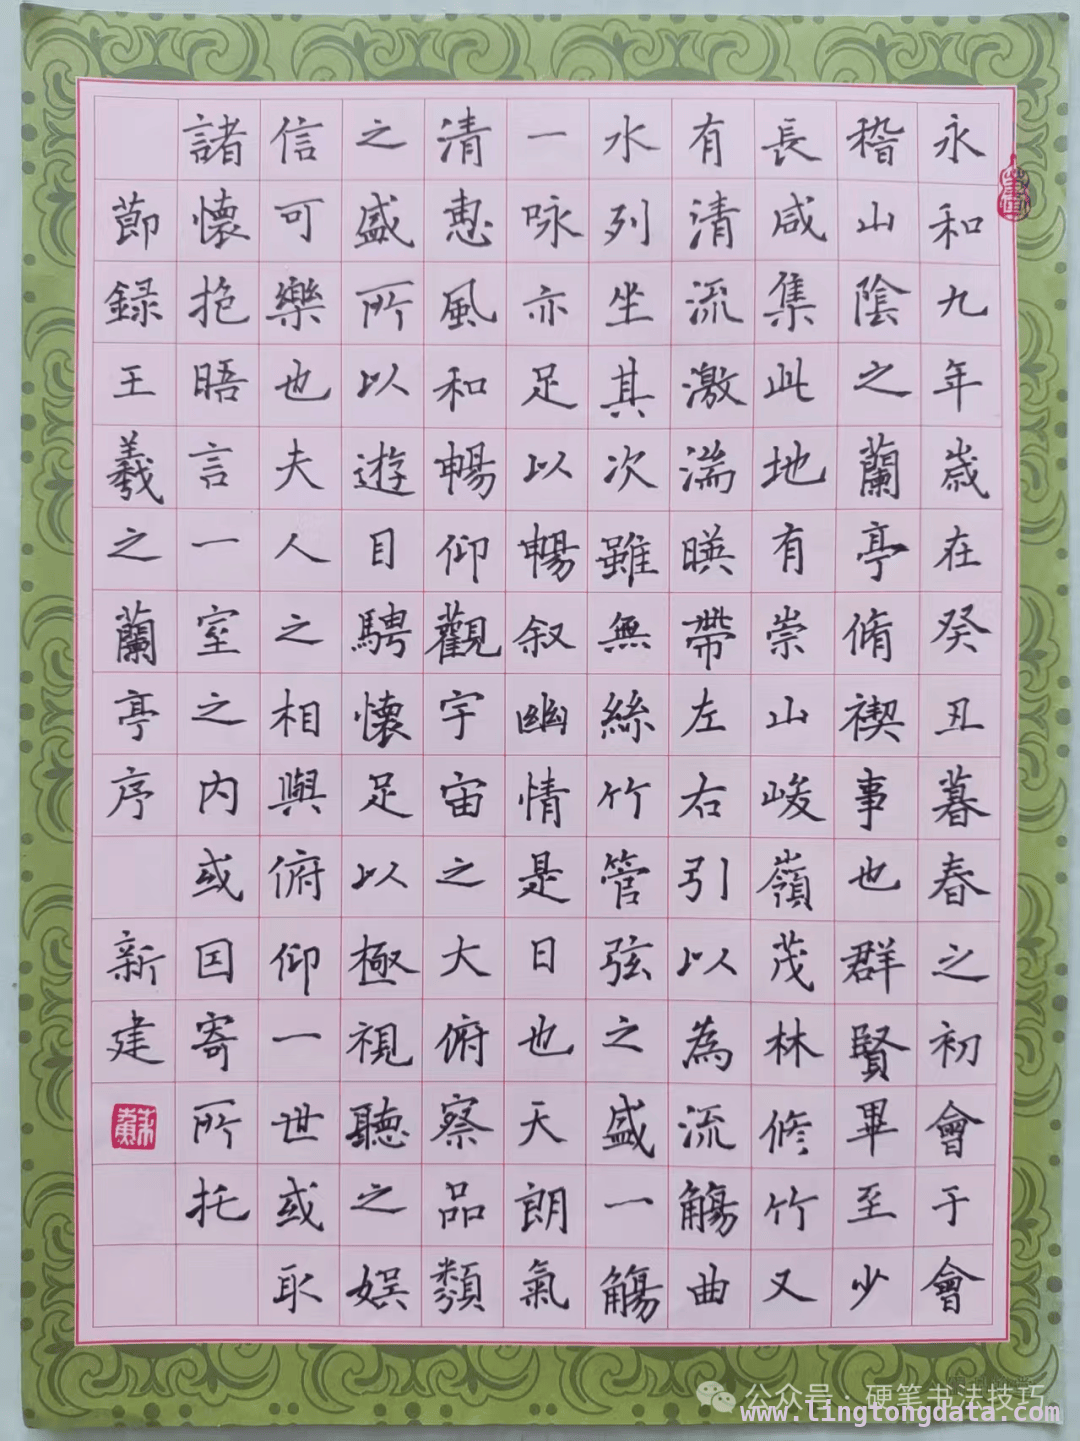 永和九年歲在癸丑暮春之初會于會
稽山陰之蘭亭脩禊事也群賢畢至少
長咸集此地有崇山峻嶺茂林修竹又
有清流激湍暎帶左右引以為流觴曲
水列坐其次雖無絲竹管弦之盛一觴
一咏亦足以暢叙幽情是日也天朗氣
清惠風和暢仰觀宇宙之大俯察品類
之盛所以遊目騁懷足以極視聽之娛
信可樂也夫人之相與俯仰一世或取
諸懷抱晤言一室之內或因寄所托
節録王羲之蘭亭序 新建
公众号 · 硬笔书法技巧
www.lingtongdata.com